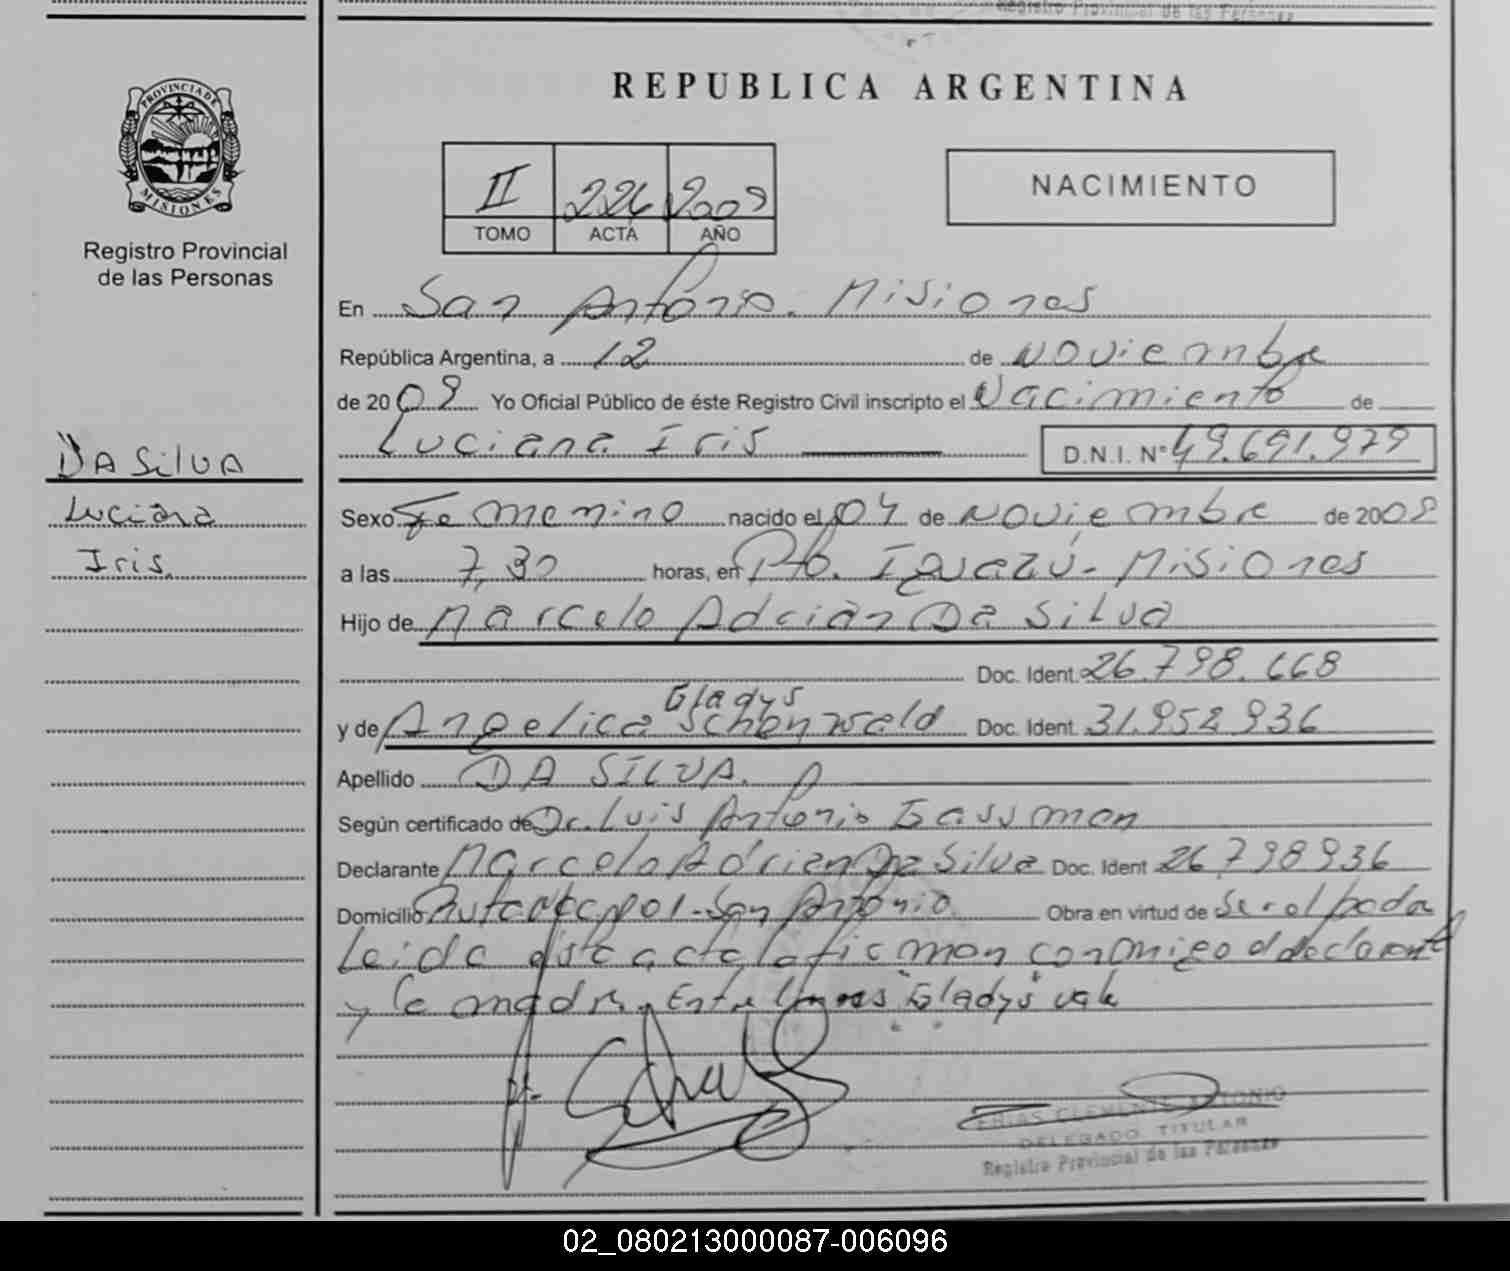 Registro Provincial de las Personas
REPUBLICA ARGENTINA
PROVINCIA DE
MISIONES
Registro Provincial
de las Personas
II 226 2009
TOMO ACTA AÑO
NACIMIENTO
En San Antonio. Misiones
República Argentina, a 12 de Noviembre
de 2009 Yo Oficial Público de éste Registro Civil inscripto el Nacimiento de
Luciana Iris D.N.I. Nº 49.691.979
DA SilVA
Luciana
Iris.
Sexo Femenino nacido el 04 de Noviembre de 2009
a las 7,30 horas, en Pto. Iguazú - Misiones
Hijo de Marcelo Adrián Da Silva
Doc. Ident. 26.798.668
Gladys
y de Angelica Schonwald Doc. Ident. 31.952.936
Apellido DA SILVA.
Según certificado de Dr. Luis Antonio Gassmon
Declarante Marcelo Adrian Da Silva Doc. Ident 26.798936
Domicilio San Antonio Obra en virtud de Ser el padre
Leida esta acta la firman conmigo el declarante
y la madre. Entre lineas "Gladys" vale
FRIAS CLEMENTE ANTONIO
DELEGADO TITULAR
Registro Provincial de las Personas
02_080213000087-006096